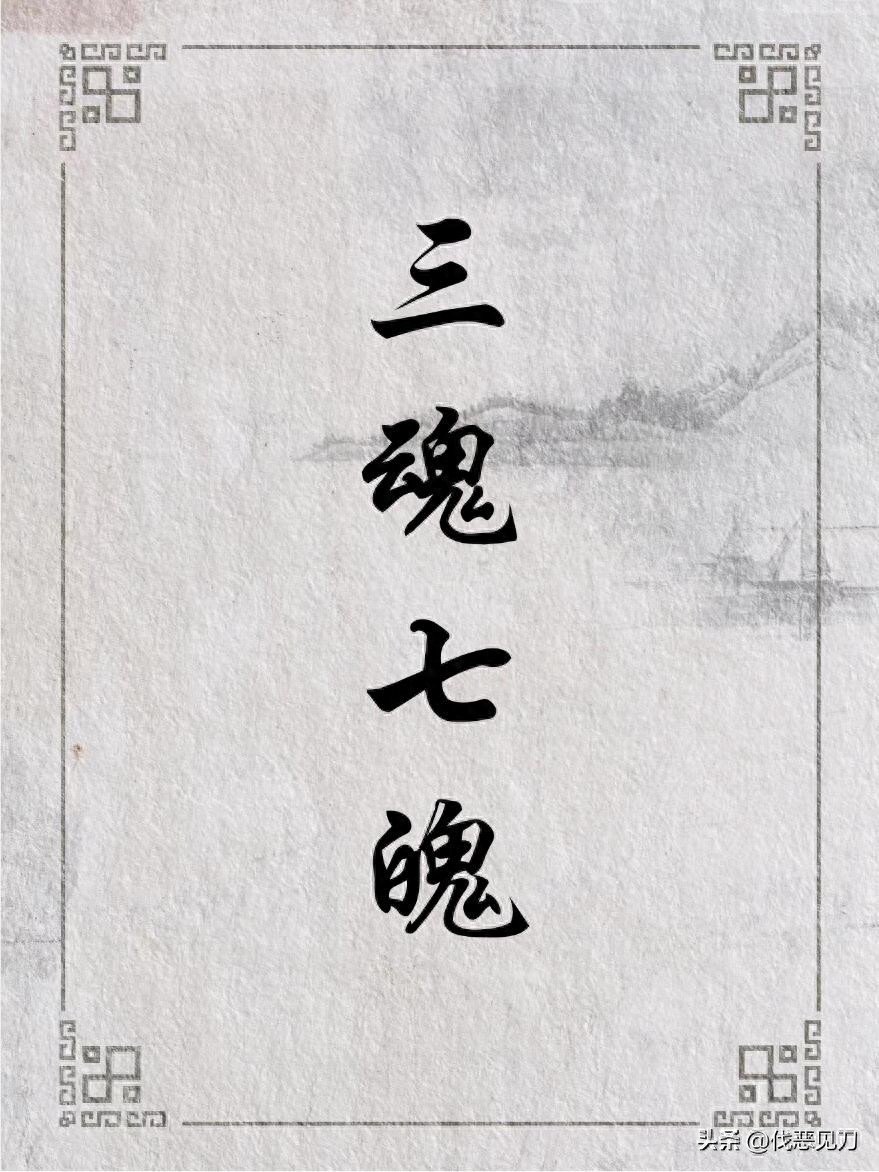 三魂七魄
头条 @伐恶见刀